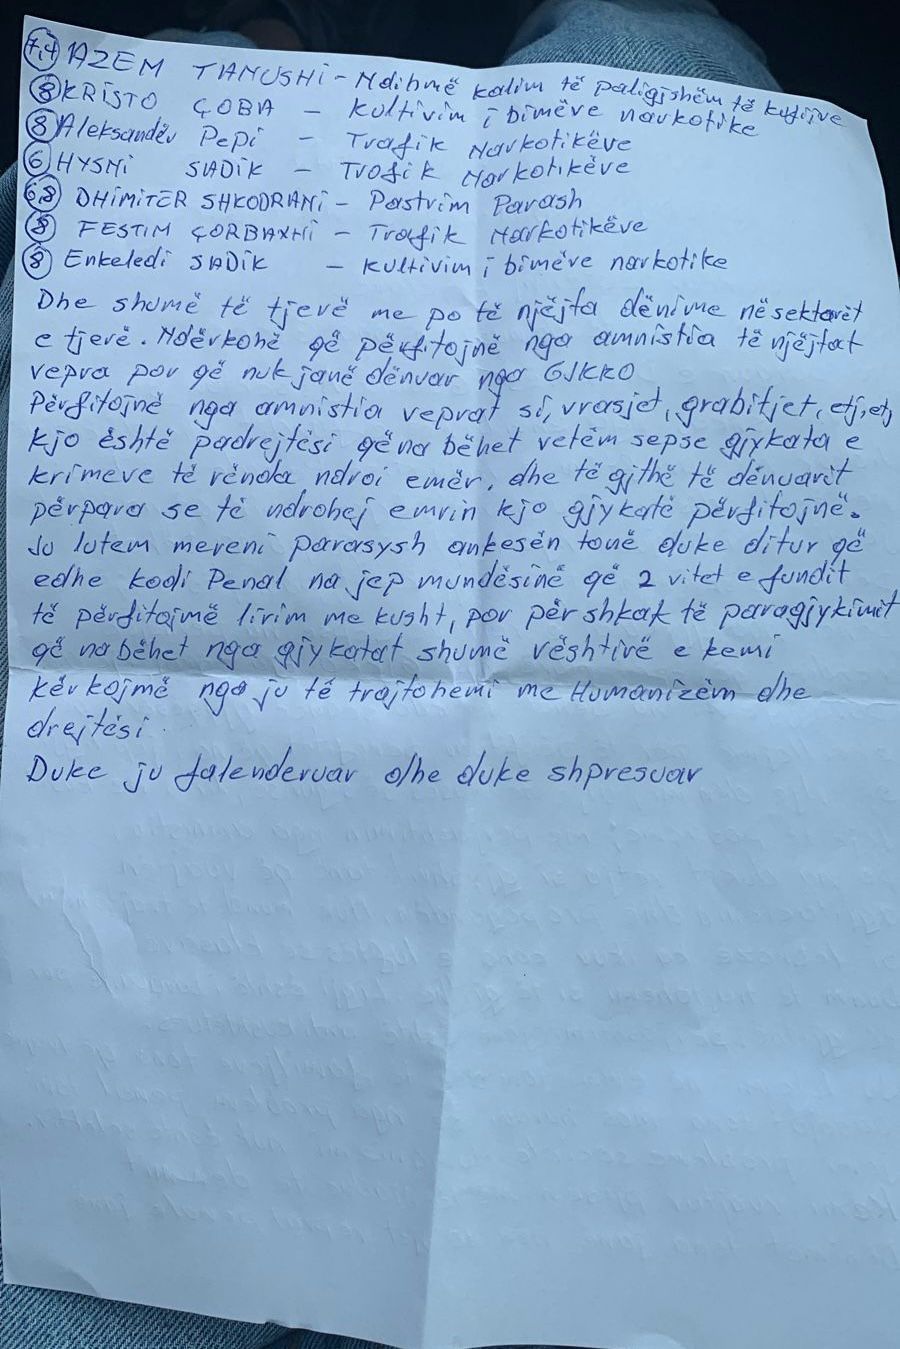 7,4 AZEM TANUSHI - Ndihmë kalim të paligjshëm të kufijve
8 KRISTO ÇOBA - Kultivim i bimëve narkotike
8 Aleksandër Pepi - Trafik Narkotikëve
6 HYSNI SADIK - Trafik Narkotikëve
6,8 DHIMITER SHKODRANI - Pastrim Parash
8 FESTIM ÇORBAXHI - Trafik Narkotikëve
8 Enkeledi SADIK - Kultivim i bimëve narkotike
Dhe shumë të tjerë me po të njëjta dënime në sektorët
e tjerë. Ndërkohë që përfitojnë nga amnistia të njëjtat
vepra por që nuk janë dënuar nga GJKKO
Përfitojnë nga amnistia veprat si, vrasjet, grabitjet, etj, etj
kjo është padrejtësi që na bëhet vetëm sepse gjykata e
krimeve të rënda ndroi emër, dhe të gjithë të dënuarit
përpara se të ndrohej emrin kjo gjykatë përfitojnë.
Ju lutem mereni parasysh ankesën tonë duke ditur që
edhe kodi Penal na jep mundësinë që 2 vitet e fundit
të përfitojmë lirim me kusht, por për shkak të paragjykimit
që na bëhet nga gjykatat shumë vështirë e kemi
kërkojmë nga ju të trajtohemi me Humanizëm dhe
drejtësi
Duke ju falenderuar dhe duke shpresuar